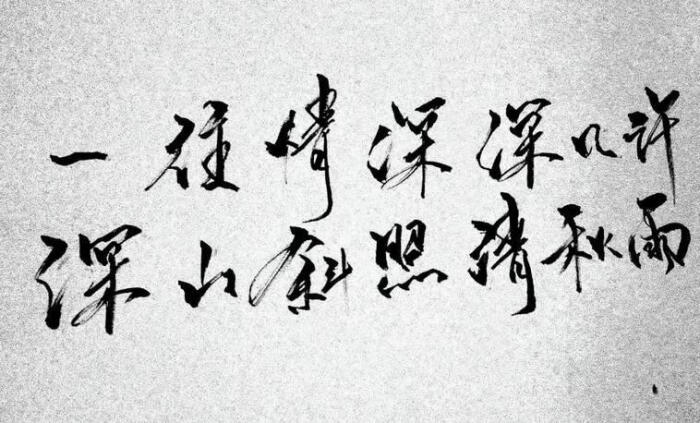 一往情深深几许
深山斜照清秋雨